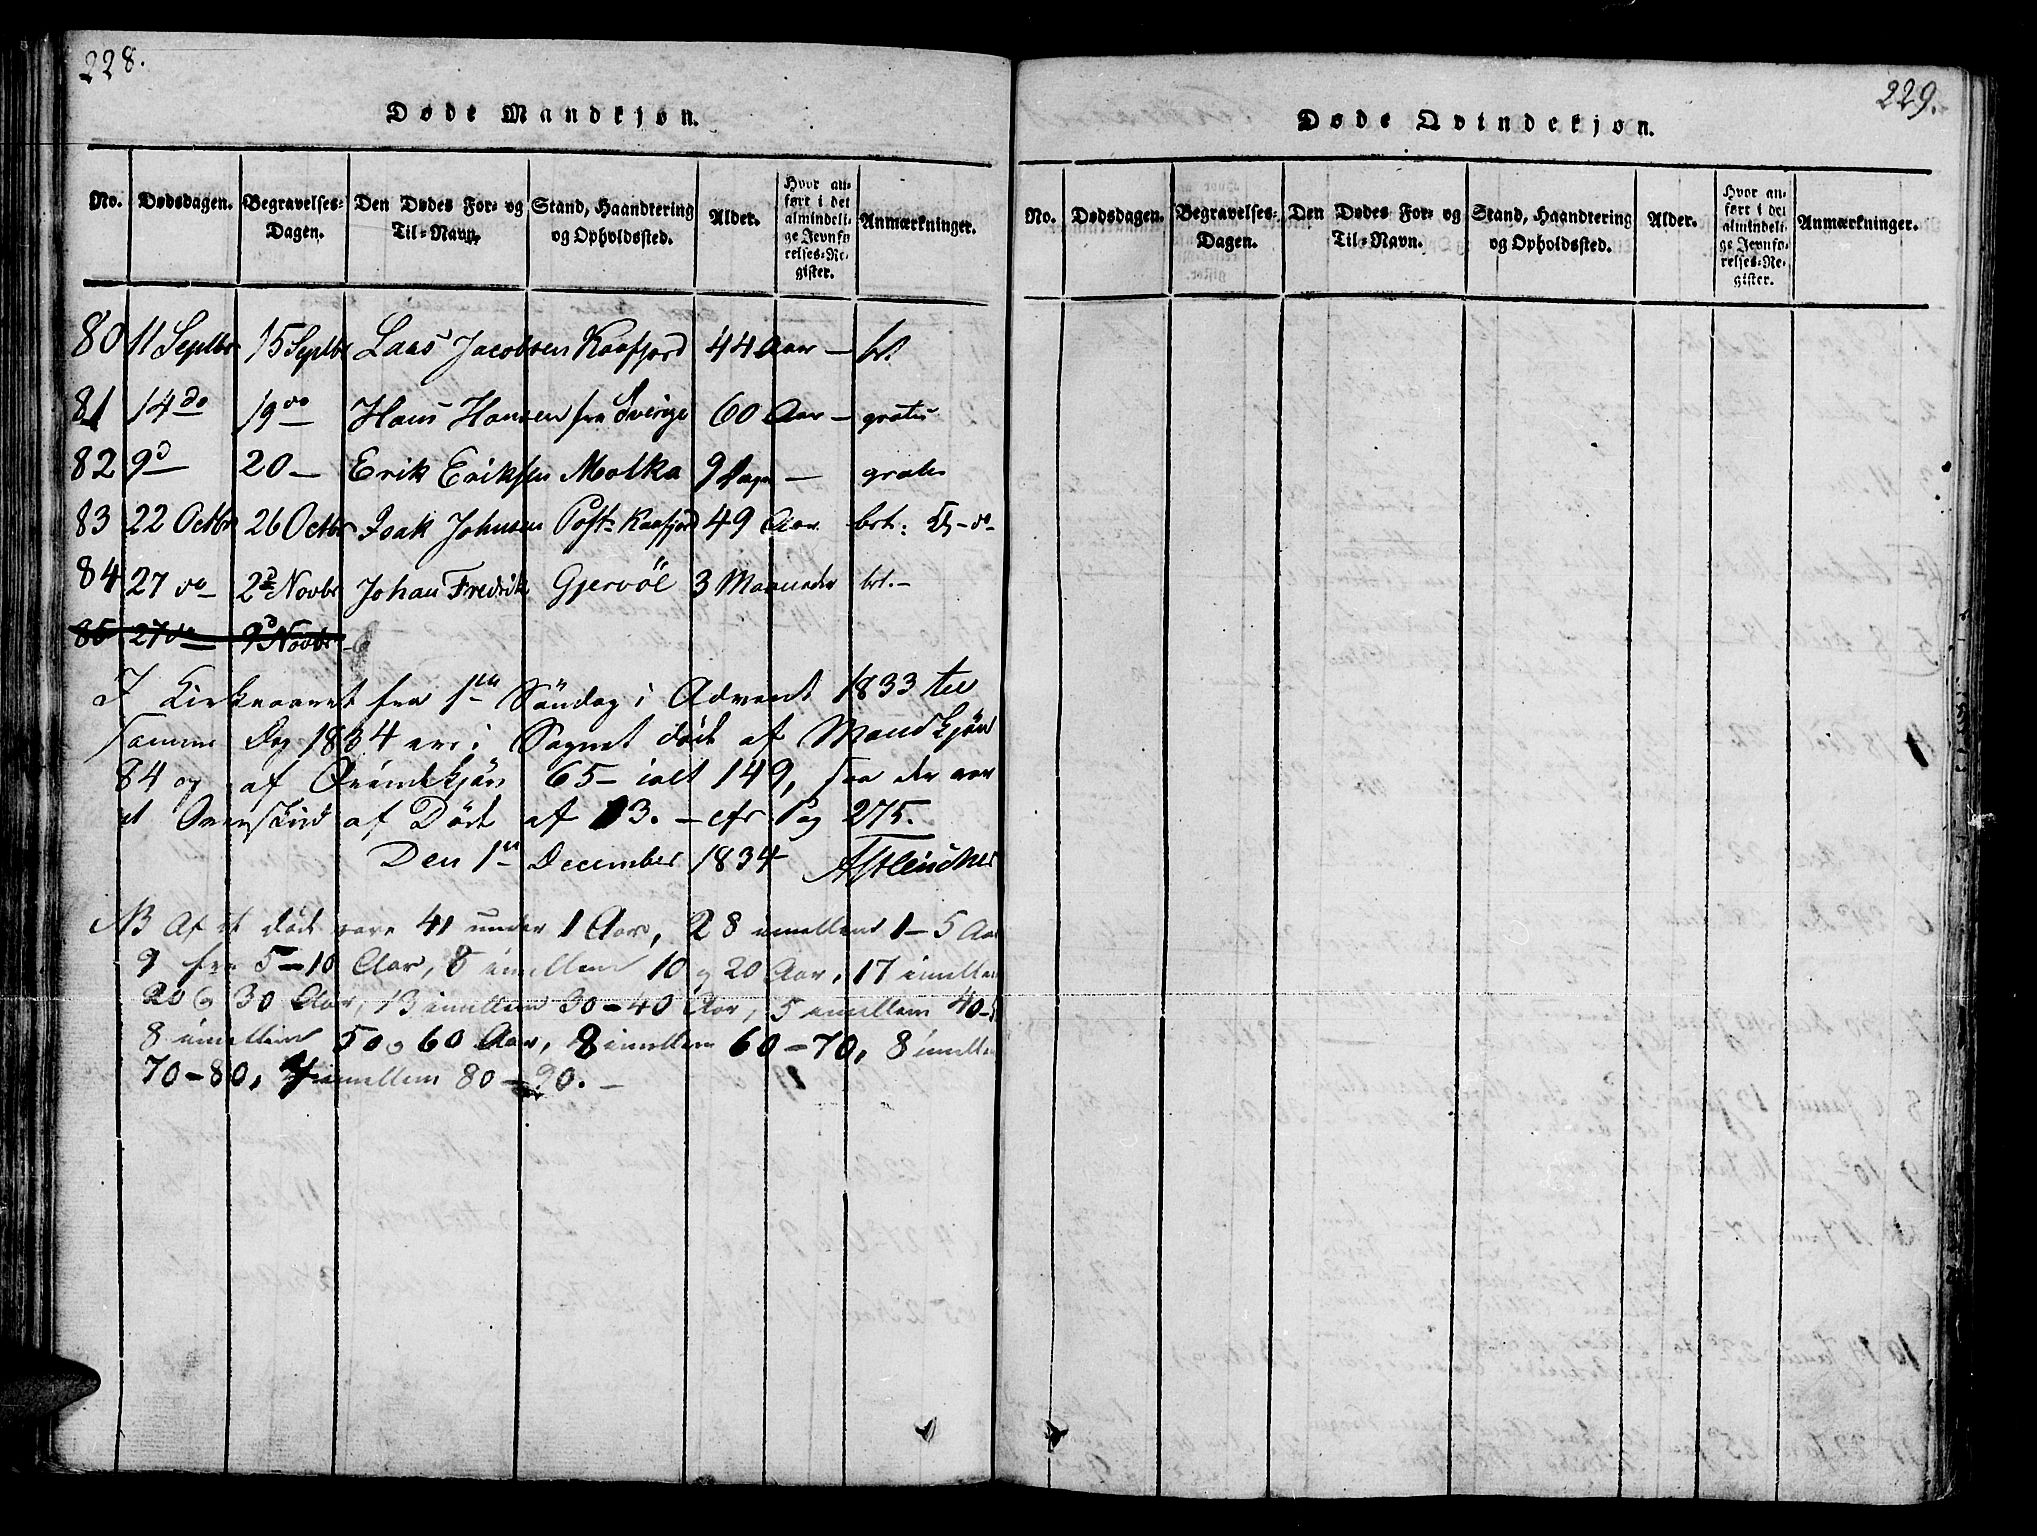 228.
Døde Mandkjøn.
No. Dødsdagen. Begravelses-Dagen. Den Dødes For- og Til-Navn. Stand, Haandtering og Opholdssted. Alder. Hvor anført i det almindelige Jevnførelses-Register. Anmærkninger.
80 11 Septbr 15 Septbr Lars Jacobsen Kaafjord 44 Aar – bt
81 14 do 19 do Hans Hansen fra Sverige 60 Aar – gratis
82 9 d 20 – Erik Eriksen Molka 9 Dage – gratis
83 22 Octbr 26 Octbr Isak Johnsen Kaafjord 49 Aar
84 27 do 2d Novbr Johan Fredrik Gjervöe 3 Maaneder bt. –
85 27 do 9d Novbr
I Kirkeaaret fra 1ste Söndag i Advent 1833 til
samme Dag 1834 ere i Sognet döde af Mandkjön
84 og af Qvindekjön 65 – ialt 149, saa der var
et Overskud af Döde af 13. – cfr Pag 275.
Den 1ste December 1834
NB Af de döde vare 41 under 1 Aar, 28 imellem 1 – 5 Aar
9 fra 5 – 10 Aar, 8 imellem 10 og 20 Aar, 17 imellem
20 og 30 Aar, 13 imellem 30 – 40 Aar, 5 imellem 40 –
8 imellem 50 og 60 Aar, 8 imellem 60 – 70, 8 imellem
70 – 80, 4 imellem 80 – 90. –
229.
Døde Qvindekjøn.
No. Dødsdagen. Begravelses-Dagen. Den Dødes For- og Til-Navn. Stand, Haandtering og Opholdssted. Alder. Hvor anført i det almindelige Jevnførelses-Register. Anmærkninger.